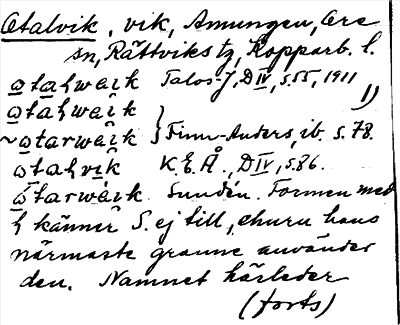 Otalvik, vik, Amungen, Ore
sn, Rättviks tg, Kopparb. l.
otaɦwaik Talos-J, DIV, s.55, 1911
otaɦwaik } "
~otarwaik } Finn-Anders, ib. s. 78.
otaɦvik K.E.Å., DIV, s.86.
ótarwaik. Sundén. Formen med
ɦ känner S. ej till, ehuru hans
närmaste granne använder
den. Namnet härleder
(forts)